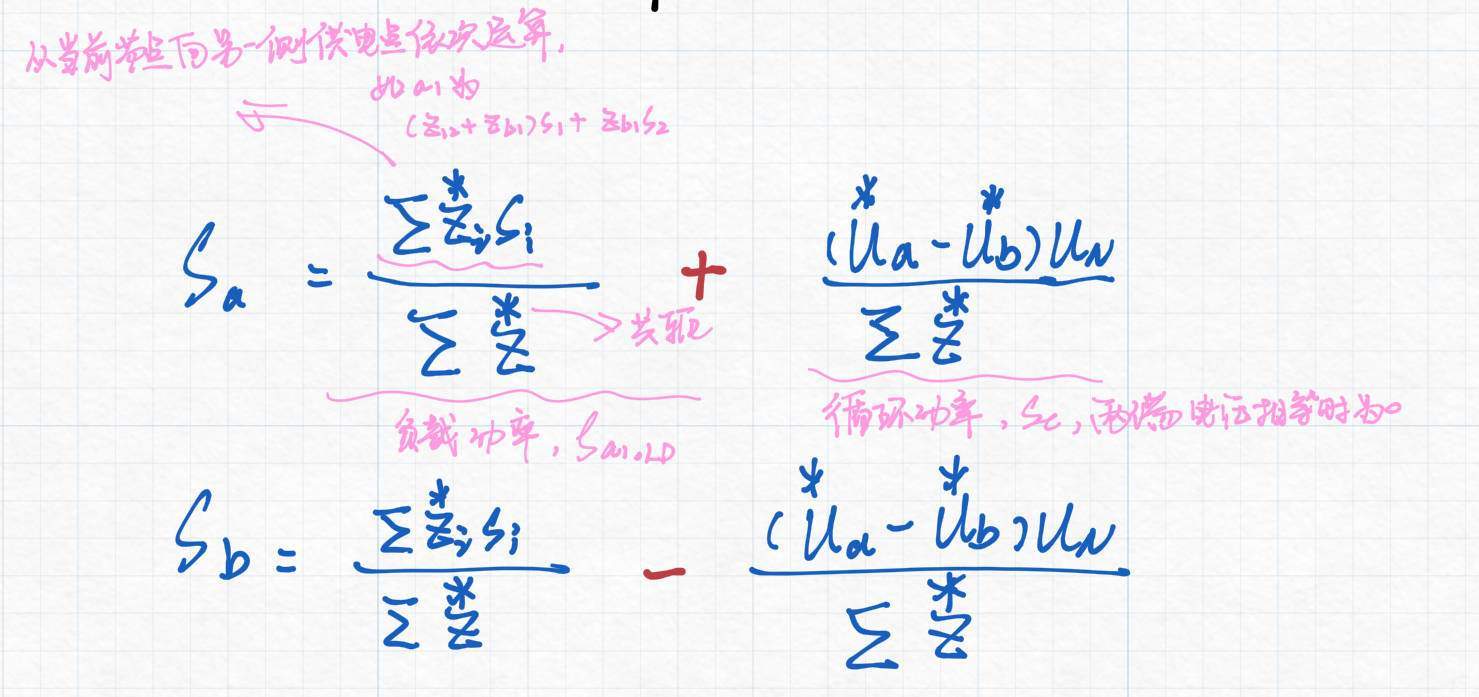 从当前节点向另一侧供电点依次运算,
如a1为
(z12+zb1)s1+zb1s2
Sa = ∑z*iSi / ∑z* + (U*a-U*b)UN / ∑z*
共轭
负载功率, Sa1,LD
循环功率, Sc, 两端电压相等时为0
Sb = ∑z*iSi / ∑z* - (U*a-U*b)UN / ∑z*